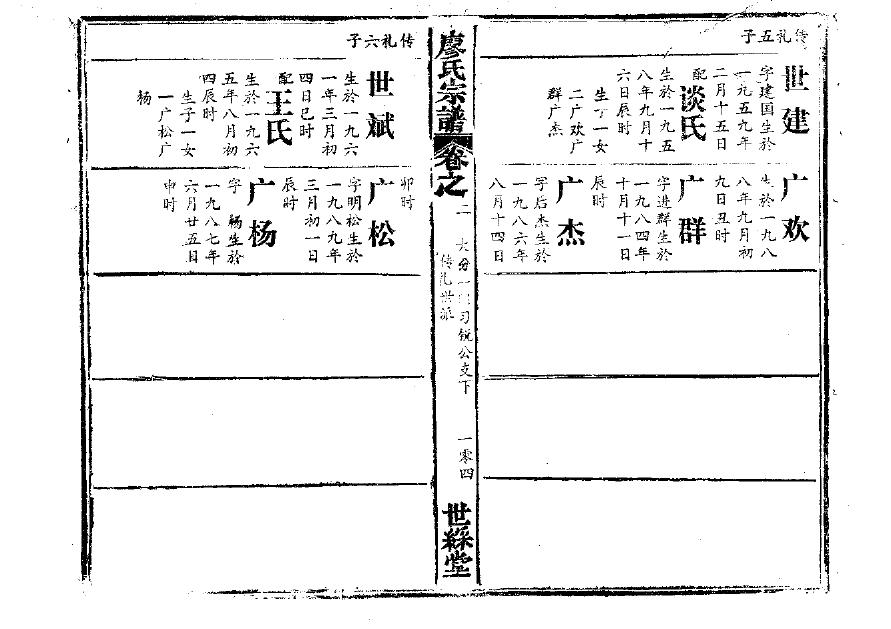 传礼五子
世建
字建国生於
一九五九年
二月十五日
配
谈氏
生於一九五
八年九月十
六日辰时
生子一女
二广欢广
群广杰
广欢
生於一九八
八年九月初
九日丑时
广群
字进群生於
一九八四年
十月十一日
辰时
广杰
字后杰生於
一九八六年
八月十四日
廖氏宗譜卷之二
大分一习锐公支下
传礼世派
一零四
世綵堂
传礼六子
世斌
生於一九六
一年三月初
四日巳时
配
王氏
生於一九六
五年八月初
四辰时
生子一女
一广松广
杨
卯时
广松
字明松生於
一九八九年
三月初一日
辰时
广杨
字 杨生於
一九八七年
六月廿五日
申时